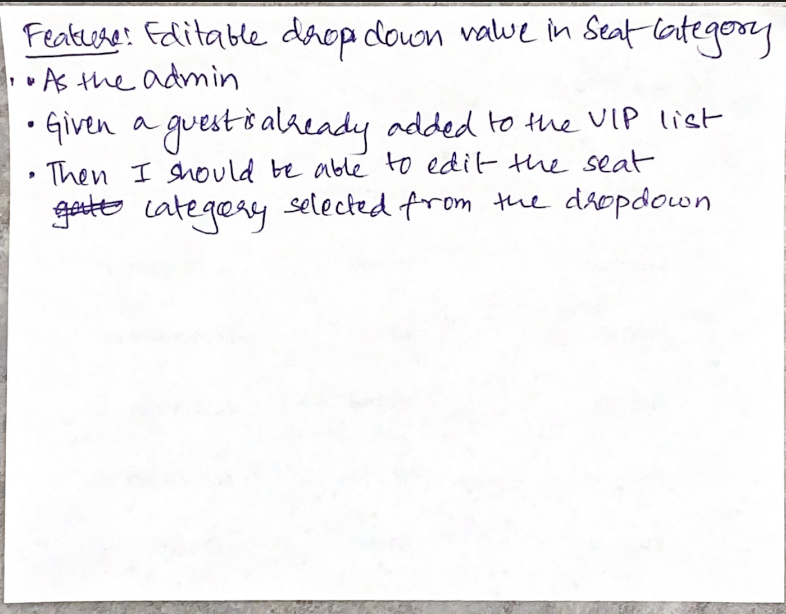 Feature: Editable dropdown value in Seat Category
• As the admin
• Given a guest is already added to the VIP list
• Then I should be able to edit the seat
category selected from the dropdown